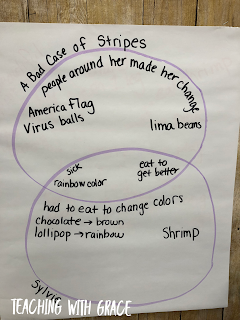 A Bad Case of Stripes
people around her made her change
America Flag
Virus balls
lima beans
sick
rainbow color
eat to
get better
had to eat to change colors
chocolate → brown
lollipop → rainbow
Shrimp
TEACHING WITH GRACE